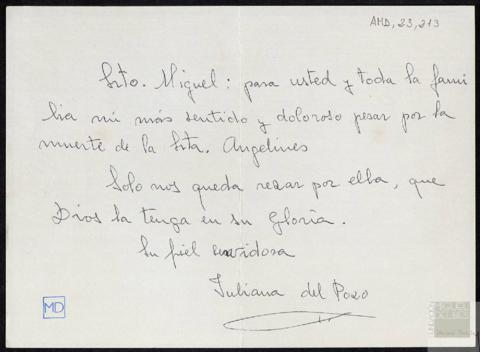 AMD, 23, 213
Srto. Miguel: para usted y toda la fami
lia mi más sentido y doloroso pesar por la
muerte de la Srta. Angelines
Solo nos queda rezar por ella, que
Dios la tenga en su Gloria.
Su fiel servidora
Juliana del Pozo
MD